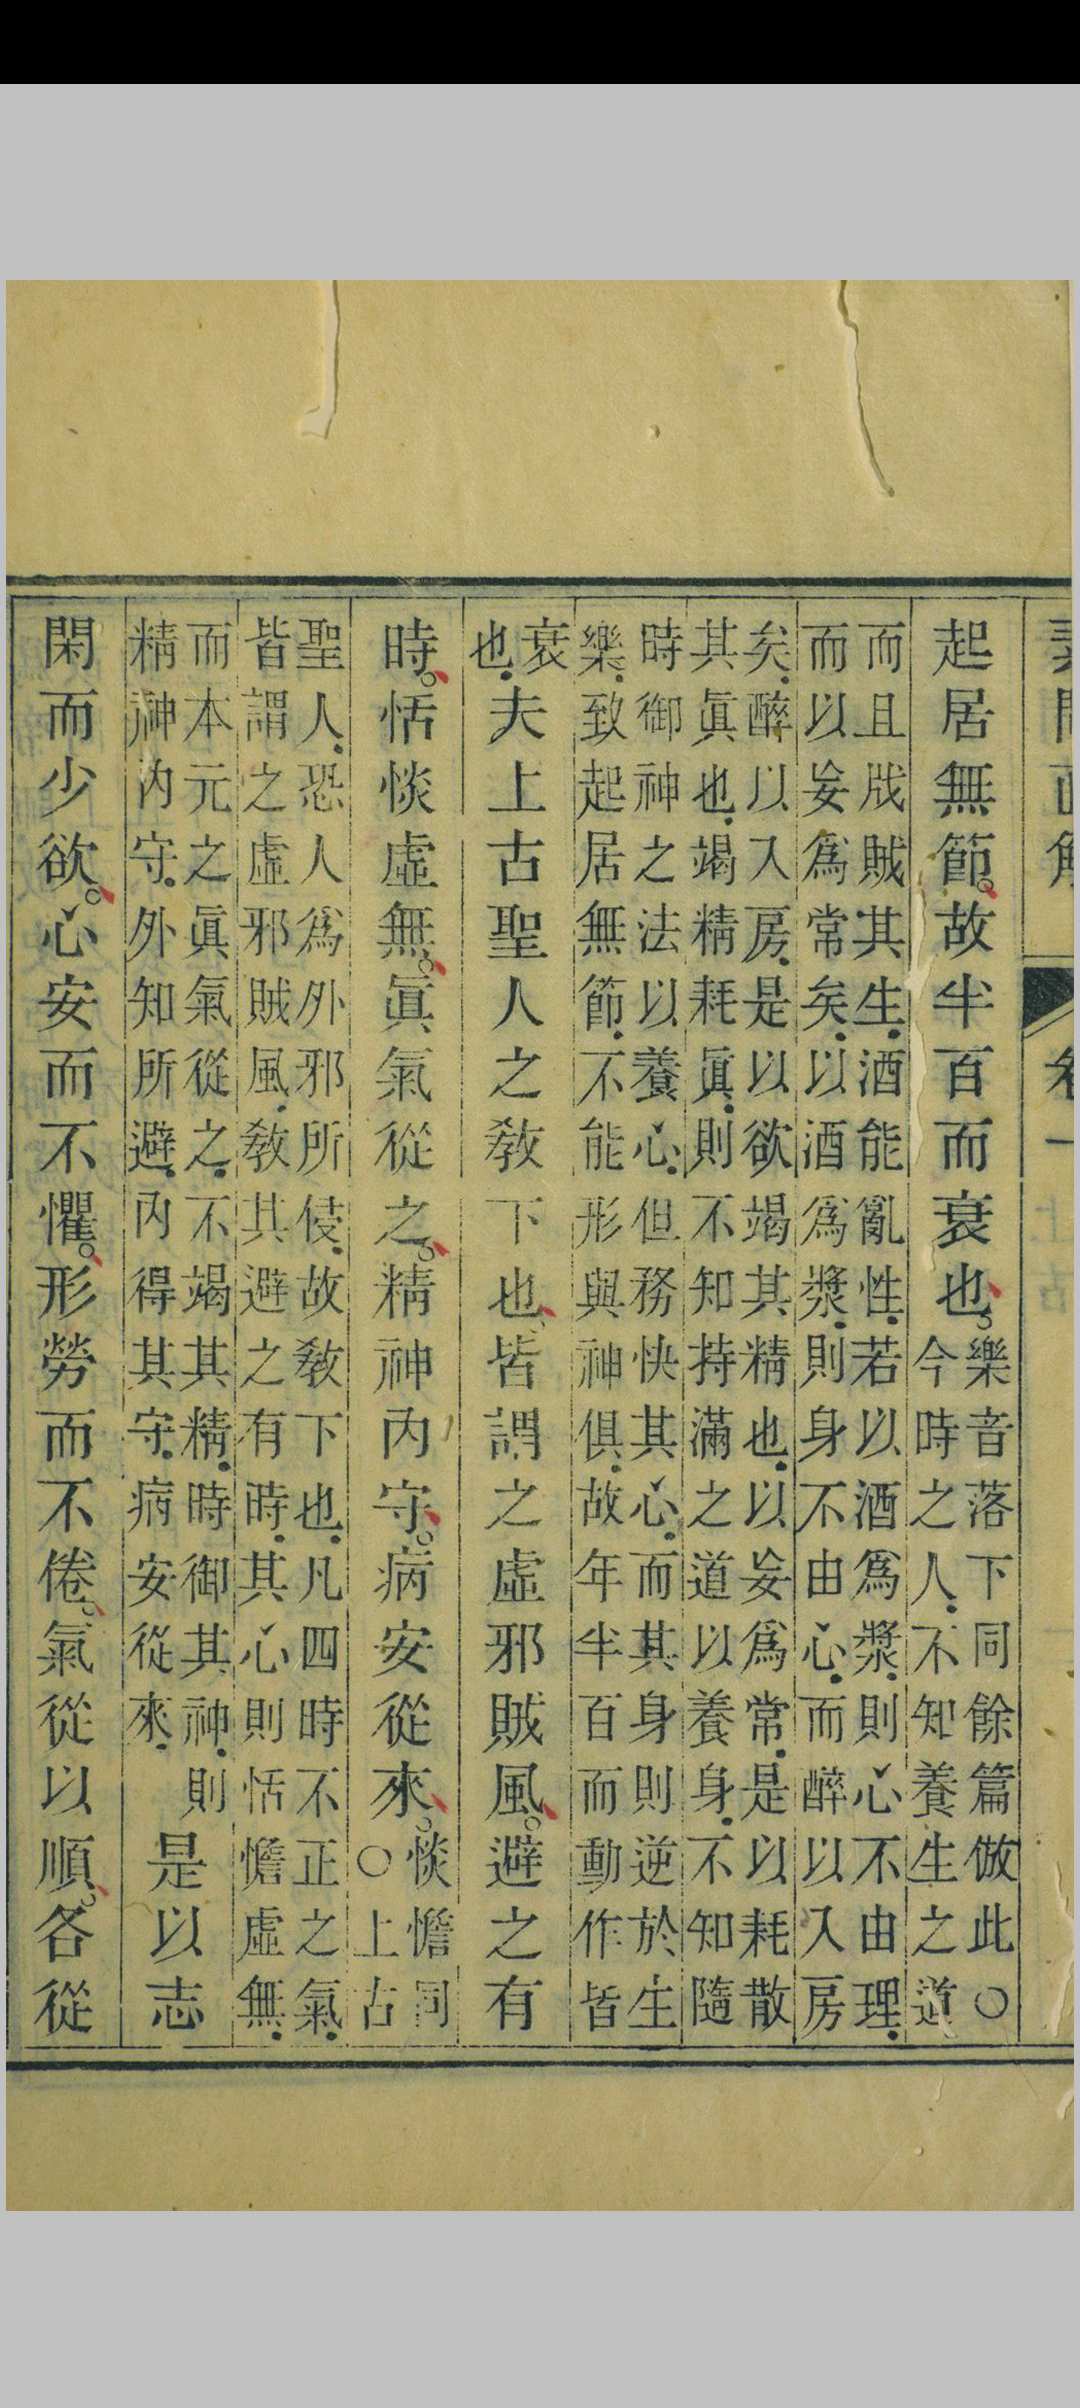 起居無節故半百而衰也
樂音落下同餘篇倣此○
今時之人不知養生之道
而且戕賊其生酒能亂性若以酒爲漿則心不由理
而以妄爲常矣以酒爲漿則身不由心而醉以入房
矣醉以入房是以欲竭其精也以妄爲常是以耗散
其眞也竭精耗眞則不知持滿之道以養身不知隨
時御神之法以養心但務快其心而其身則逆於生
樂致起居無節不能形與神俱故年半百而動作皆
衰
也
夫上古聖人之敎下也皆謂之虛邪賊風避之有
時恬惔虛無眞氣從之精神内守病安從來
惔憺同
○上古
聖人恐人爲外邪所侵故敎下也凡四時不正之氣
皆謂之虛邪賊風敎其避之有時其心則恬憺虛無
而本元之眞氣從之不竭其精時御其神則
精神内守外知所避内得其守病安從來
是以志
閑而少欲心安而不懼形勞而不倦氣從以順各從